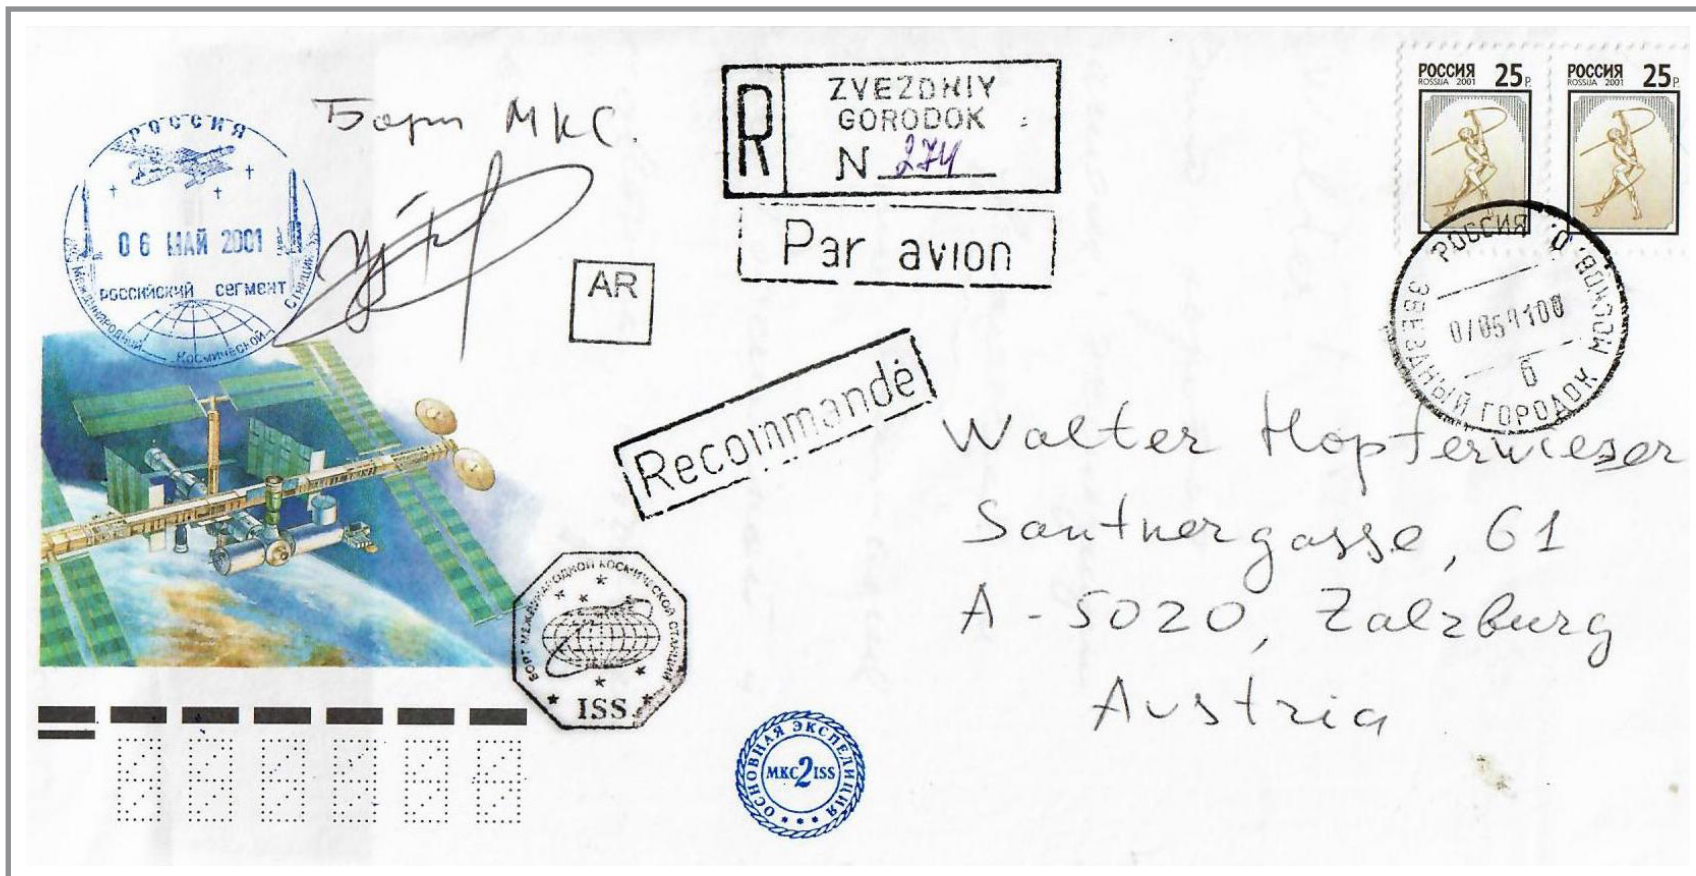 РОССИЯ
06 МАЙ 2001
РОССИЙСКИЙ СЕГМЕНТ
МЕЖДУНАРОДНЫЙ КОСМИЧЕСКОЙ СТАНЦИИ
Борт МКС.
R
ZVEZDNIY
GORODOK
N 274
Par avion
AR
Recommandé
РОССИЯ 25 Р.
ROSSIJA 2001
РОССИЯ 25 Р.
ROSSIJA 2001
РОССИЯ МОСКОВ. О.
6
ЗВЕЗДНЫЙ ГОРОДОК
Walter Hopferwieser
Santnergasse, 61
A-5020, Zalzburg
Austria
БОРТ МЕЖДУНАРОДНОЙ КОСМИЧЕСКОЙ СТАНЦИИ
ISS
ОСНОВНАЯ ЭКСПЕДИЦИЯ
МКС 2 ISS